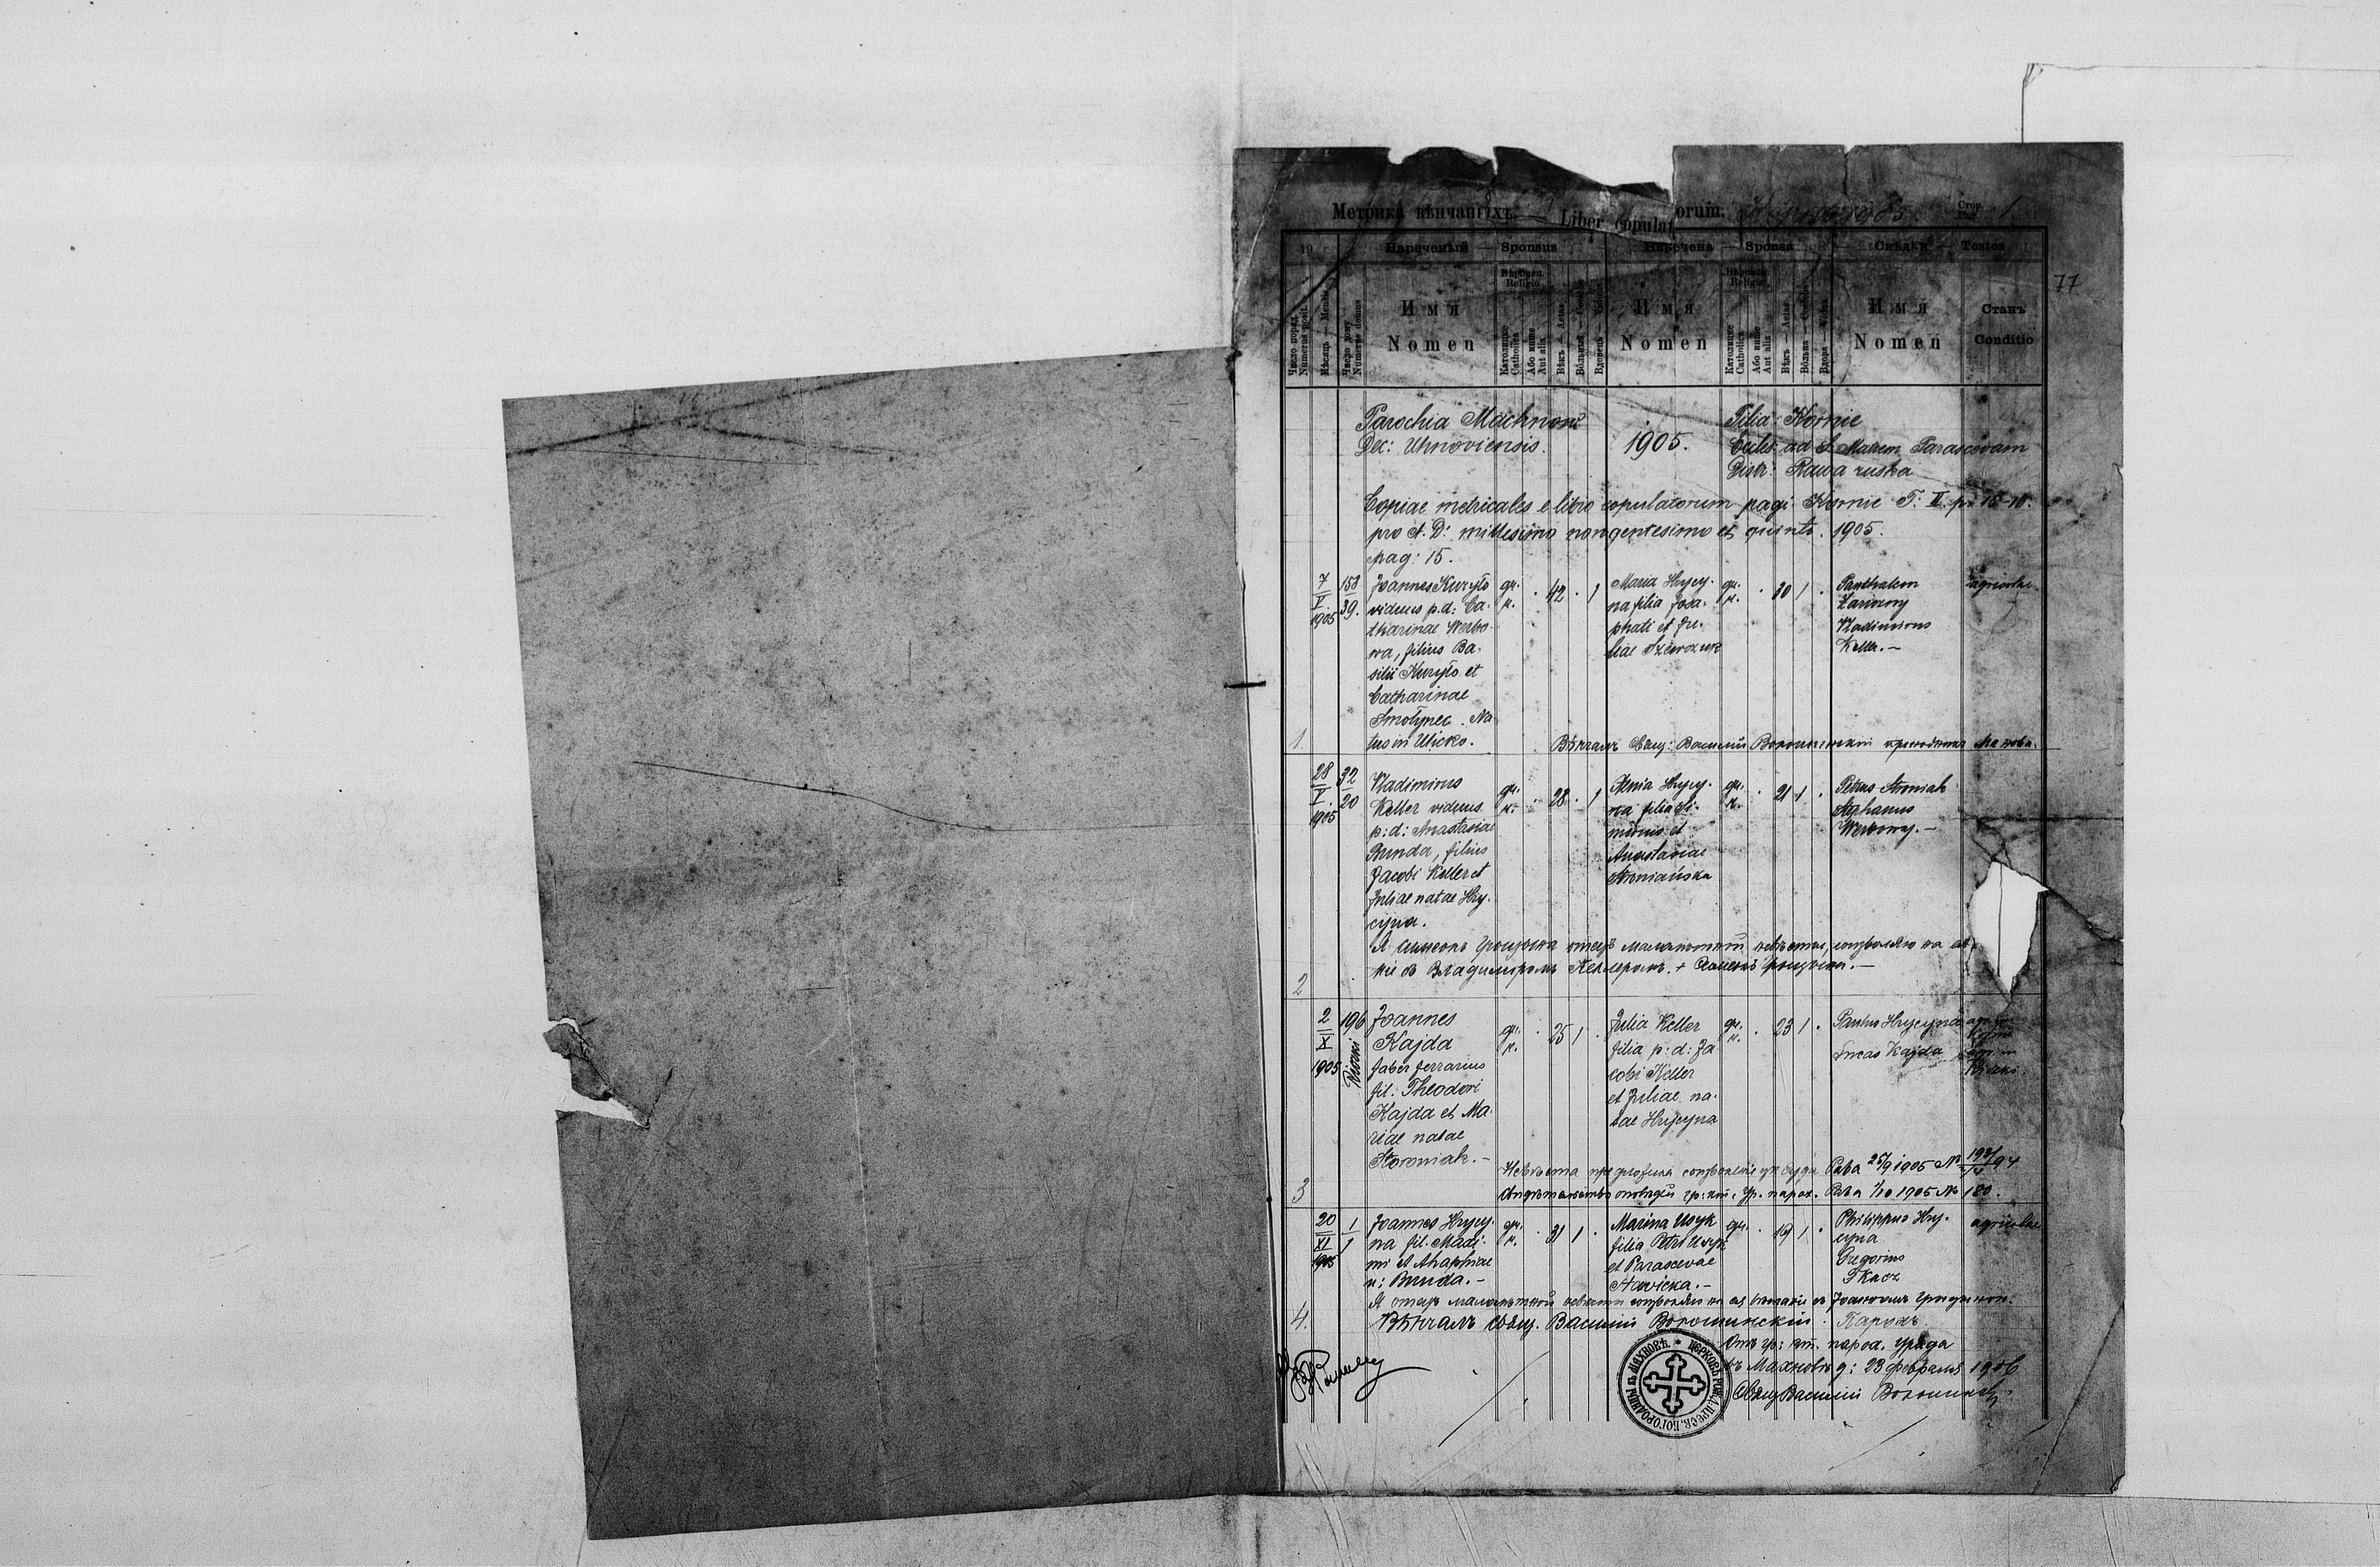 Метрика вѣнчанныхъ. — Liber copulatorum. 1905. Стор. Pag. 1.
77
19 Нареченый — Sponsus Наречена — Sponsa Свѣдки — Testes
Число поряд. Numerus posit.
Мѣсяць — Mensis
Число дому Numerus domus
Имя Nomen
Вѣроисп. Religio
Католицке Catholica
Або инше Aut alia
Вѣкъ — Aetas
Имя Nomen
Вѣроисп. Religio
Католицке Catholica
Або инше Aut alia
Вѣкъ — Aetas
Вдова — Vidua
Имя Nomen
Станъ Conditio
Parochia Machnow
Dec: Uhnoviensis.
1905.
Filia Kornie
Eccles: ad S. Matrem Parascevam
Distr: Rawa ruska
Copiae metricales e libro copulatorum pagi Kornie T: II. p: 15-18.
pro A. D: millesimo nongentesimo et quinto. 1905.
pag: 15.
1.
7/V. 1905
158/39.
Joannes Kuryło
viduus p.d: Ca-
tharinae Werbo-
wa, filius Ba-
silii Kuryło et
Catharinae
Smolynec. Na
tus in Ulicko.
gr. k. · 42 · 1
Maria Hrycy-
na filia Josa-
phati et Ju-
liae Szewczuk
gr. k. · 30 1 ·
Panthalem
Zariczny
Vladimirus
Keller. —
agricolae
Вѣнчалъ Свящ: Василій Ворошинскій приходникъ Махнова.
2
28/V. 1905
32/20
Vladimirus
Keller viduus
p: d: Anastasiae
Bunda, filius
Jacobi Keller et
Juliae natae Hry-
cyna.
gr. k. · 28 · 1
Xenia Hrycy-
na filia Si-
meonis et
Anastasiae
Stroniańska
gr. k. · 21 1 ·
Petrus Stroniak
Stephanus
Werbowy. —
Я Симеонъ Грицына отецъ малолѣтной невѣсты, соизволяю на вѣ
ніе съ Владиміромъ Келлеромъ. + Симеонъ Грицына. —
3
2/X 1905
196
Rzeczki
Joannes
Kajda
faber ferrarius
fil: Theodori
Kajda et Ma-
riae natae
Storoniak. —
gr. k. · 25 1 ·
Julia Keller
filia p: d: Ja
cobi Keller
et Juliae na-
tae Hrycyna
gr. k. · 23 1 ·
Paulus Hrycyna
Lucas Kajda
Невѣста предложила соизволеніе ц.к. суду Рава 25/9 1905 №
Свидѣтельство оповѣдій гр: кат. Ур. парох. Рава 1/10 1905 № 180.
4.
20/XI 1905
1/1
Joannes Hrycy-
na fil. Maxi-
mi et Ahaphiae
n: Bunda. —
gr. k. · 31 1 ·
Marina Usyk
filia Petri Usyk
et Parascevae
Stawicka. —
gr. · 19 1 ·
Philippus Hry-
cyna
Gregorius
Tkacz
agricolae
Я отецъ малолѣтной невѣсты соизволяю на ея вѣнчаніе съ Іоанномъ Грицыною.
Вѣнчалъ Свящ. Василій Ворошинскій. Парохъ.
Отъ гр: кат. парох. уряда
въ Махновѣ д: 23 февраля 1906
Свящ Василій Ворошинскій.
ЦЕРКОВЬ РОЖД. ПРЕСВ. БОГОРОДИЦЫ ВЪ МАХНОВѢ.